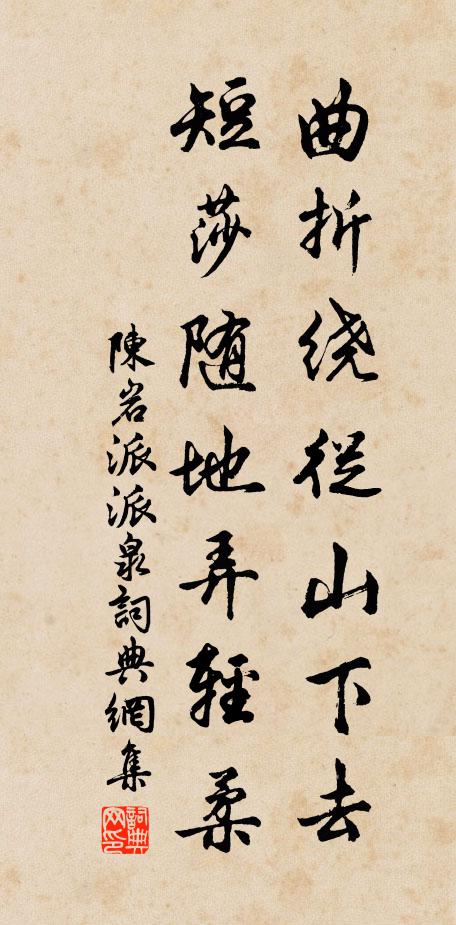 曲折绕從山下去
短莎随地弄輕柔
陳岩派派泉詞典網集
詞典网印